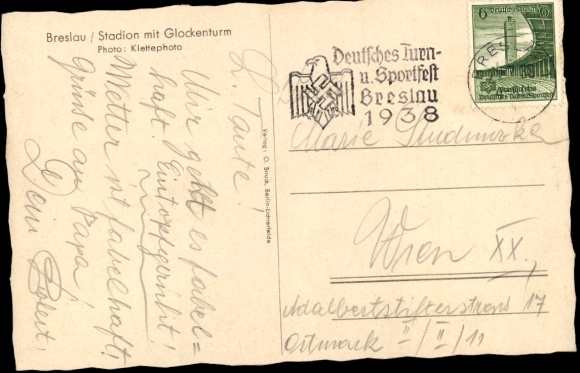 Breslau / Stadion mit Glockenturm
Photo: Klettephoto
L. Tante!
Mir geht es fabel=
haft Eintopfgericht!
Wetter ist fabelhaft!
Grüsse an Papa!
Dein Robert!
Verlag: O. Struck, Berlin-Lichterfelde
Deutsches Turn-
u. Sportfest
Breslau
1938
BRESL
6
Deutsches Turn
Marie
Wien XX,
Adalbertstifterstrass 17
Ostmark II/II/11